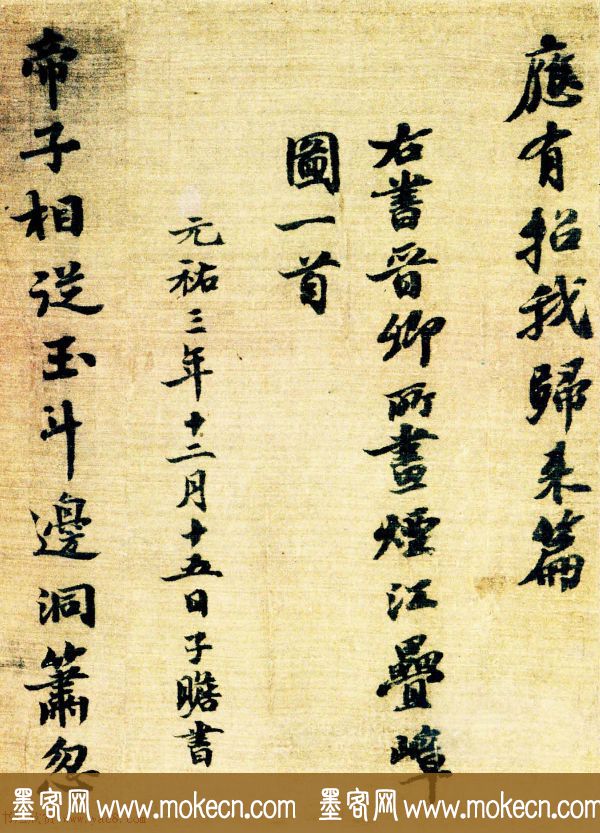 應有招我歸来篇
右書晉卿所畫煙江疊嶂
圖一首
元祐三年十二月十五日子瞻書
帝子相從玉斗邊洞簫忽
墨客网 www.mokecn.com 墨客网 www.mokecn.com